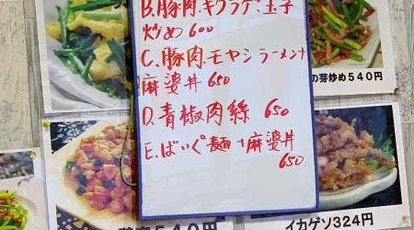 B.豚肉.キクラゲ.玉子
炒め 600
C.豚肉.モヤシラーメン+
麻婆丼 650
D.青椒肉絲 650
E.ばいぐ麺+麻婆丼
650
の芽炒め540円
540円
イカゲソ324円